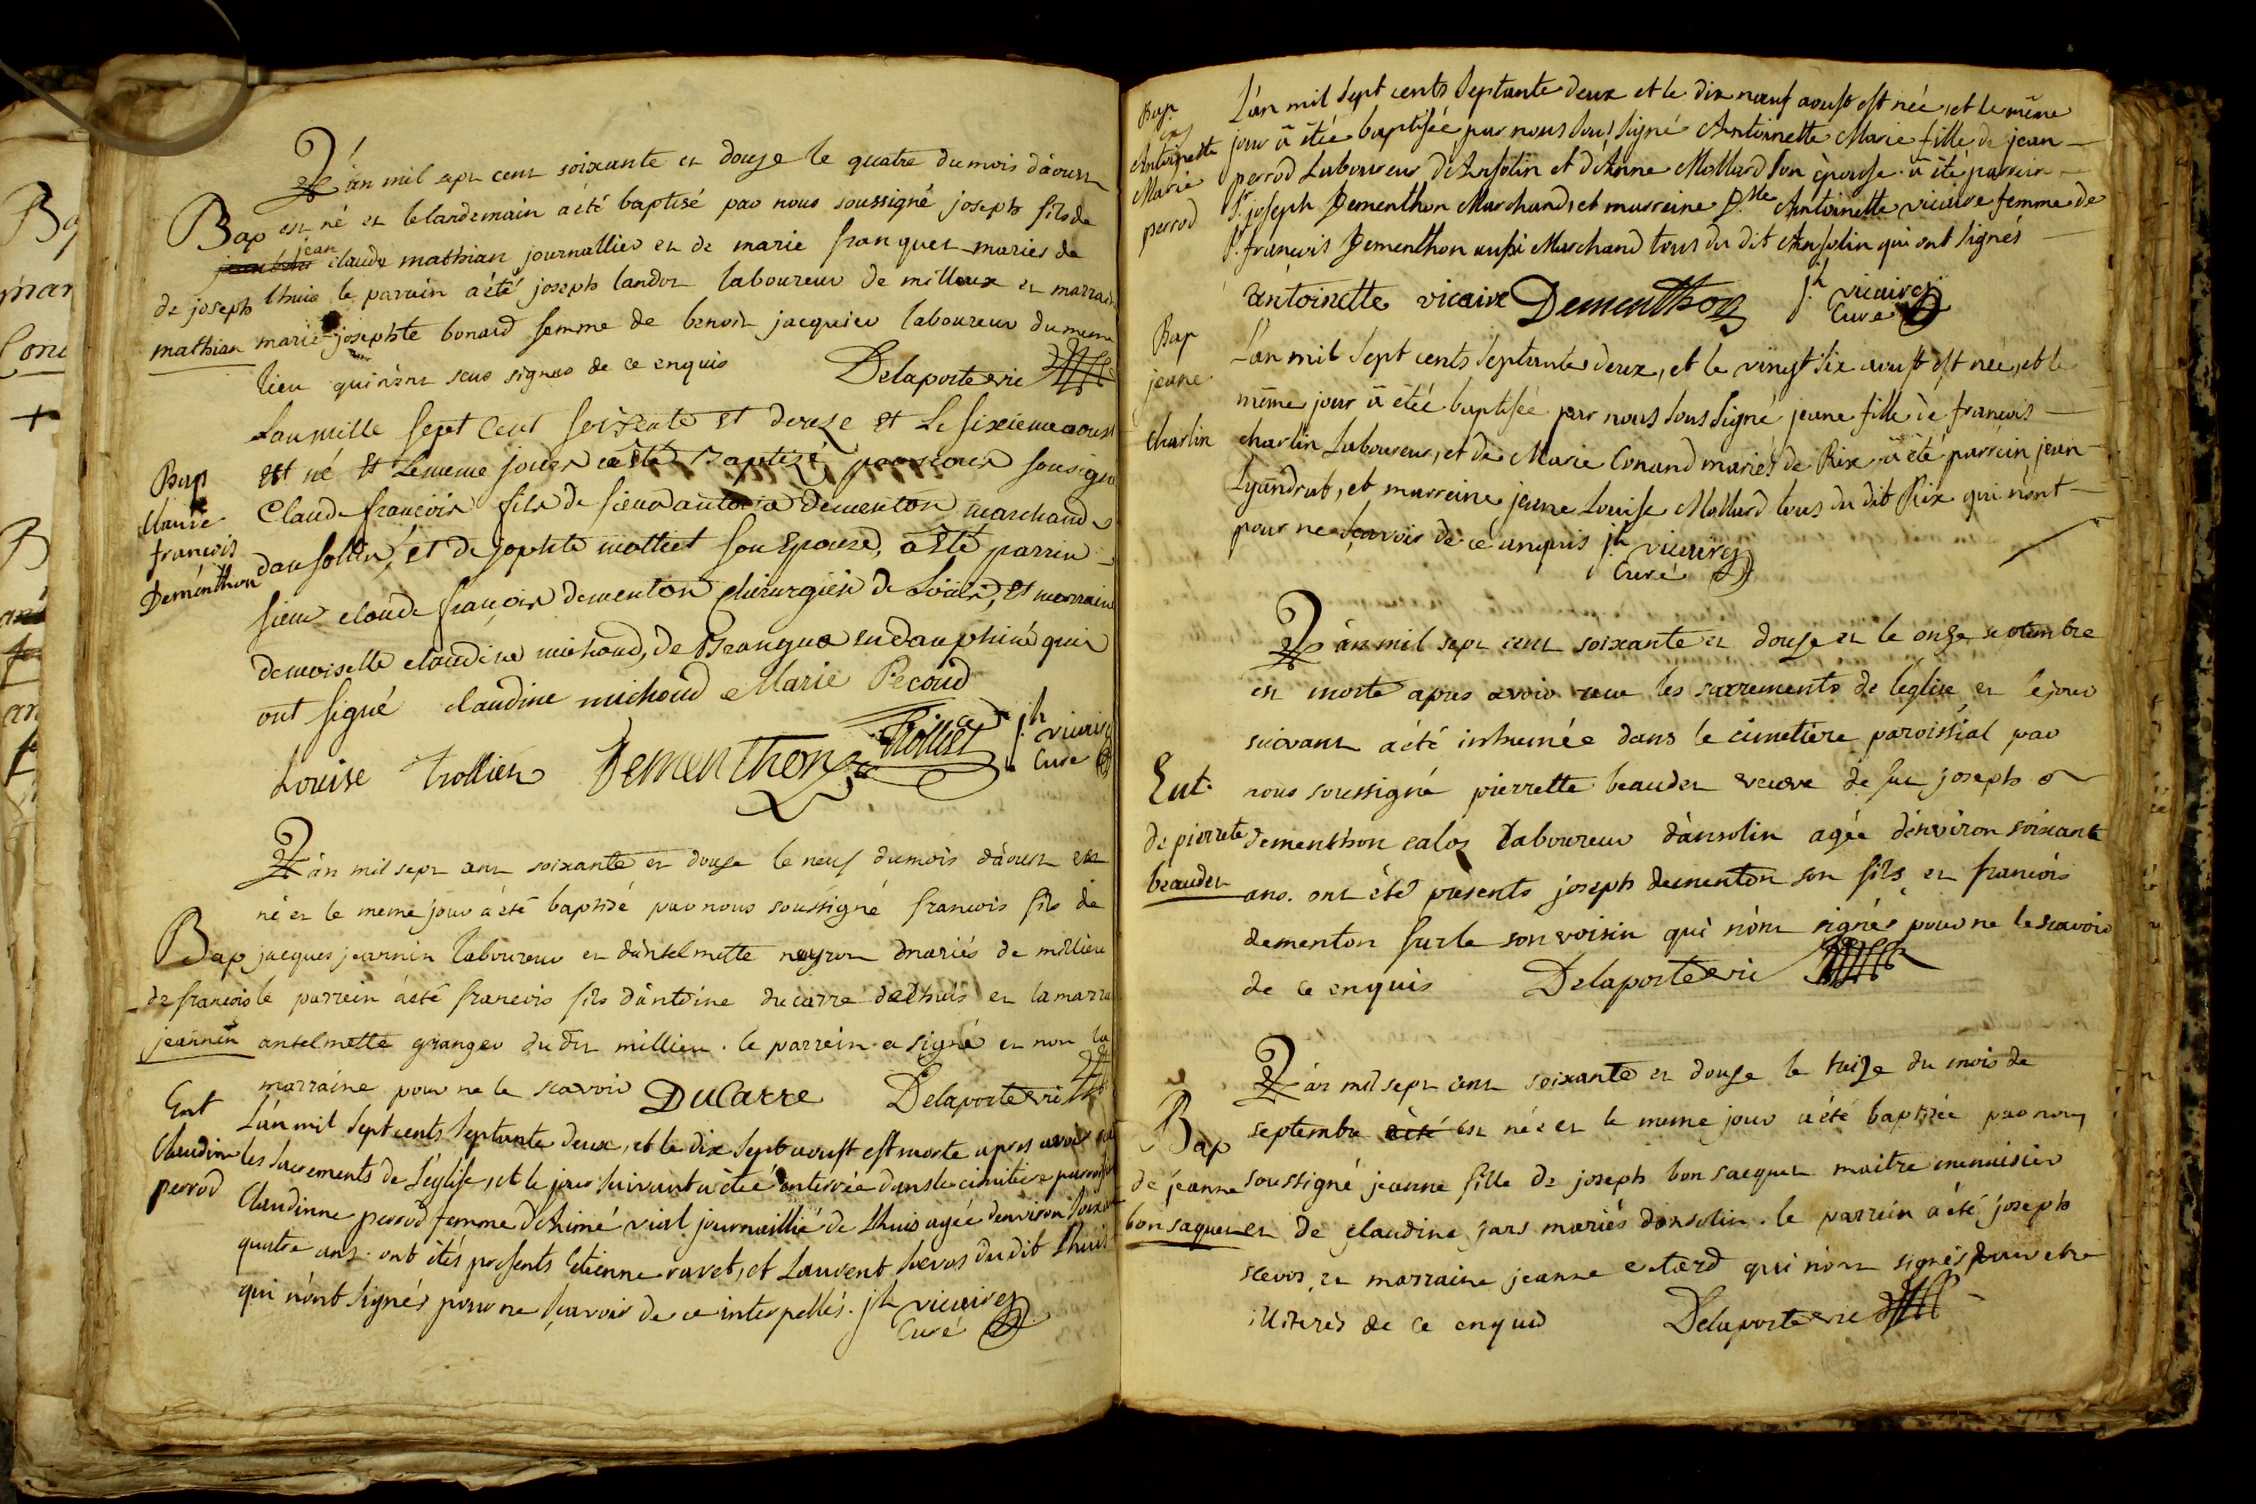 L'an mil sept cent soixante et douze le quatre du mois d'aoust
Bap est né et le landemain a été baptisé par nous soussigné joseph fils de
jean claude mathian journallier et de marie franquet mariés de
de joseph lhuis le parrain a été joseph landoz laboureur de millieux et marraine
mathian marie josephte bonard femme de benoit jacquier laboureur du meme
lieu qui n'ont scus signer de ce enquis Delaporte vic
L'an mille sept cent soixente et douze et le sixieme aoust
est né et le meme jour a été Baptizé par nous sousigné
Bap
Claude françois fils de sieur antoine dementon marchand
Claude
françois
d'ansolin, et de josephte molliet son epouse, a été parrin
Dementhon
sieur claude françois dementon chirurgien de , et marraine
demoiselle claudine michoud, de Brangue en dauphiné qui
ont signé claudine michoud Marie Pécoud
Louise trollier Dementhon j.h vicaire
Curé
L'an mil sept cent soixante et douze le neuf du mois d'aoust est
né et le meme jour a été baptisé par nous soussigné francois fils de
Bap jacques jeannin laboureur et d'antelmette neyron mariés de millieu
de françois le parrein a été francois fils d'antoine ducarre de lhuis et la marra
jeannin antelmette granger du dit millieu. le parrein a signé et non la
marraine pour ne le scavoir DuCarre Delaporte vic
Ent
L'an mil sept cents septante deux, et le dix sept aoust est morte apres avoir
Claudine les sacrements de l'église, et le jour suivant a étée enterrée dans le cimitiere
perrod Claudinne perrod femme d'Aimé vial journaillié de Lhuis agée denviron soixante
quatre ans. ont étés presents Etienne ravet, et Laurent sevos du dit Lhuis
qui n'ont signés pour ne sçavoir de ce interpellés. j.h vicaire
Curé
Bap
L'an mil sept cents septante deux et le dix neuf aoust est née, et le même
Antoinette jour a étée baptisée par nous sous signé Antoinette Marie fille de jean
Marie perrod Laboureur d'Ansolin et d'Anne Mollard son épouse. a été parrein
perrod S.r joseph Dementhon Marchand, et marreine D.lle Antoinette vicaire femme de
S.r francois Dementhon aussi Marchand tous du dit Ansolin qui ont signés
antoinette vicaire Dementhon j.h vicaire
Curé
Bap L'an mil sept cents septante deux, et le vingt six aoust est née, et le
jeane même jour a étée baptisée par nous sous signé jeane fille de francois
charlin charlin Laboureur, et de Marie Conand mariés de Rix a été parrein jean
Lyandrat, et marreine jeane Louise Mollard tous du dit Rix qui n'ont
pour ne sçavoir de ce enquis j.h vicaire
Curé
L'an mil sept cent soixante et douze et le onze septembre
est morte apres avoir receu les sacrements de l'église et le jour
suivant a été inhumée dans le cimetiere paroissial par
Ent. nous soussigné pierrette beaudet veuve de feu joseph
de pierrete dementhon caloz laboureur d'ansolin agée d'environ soixante
beaudet ans. ont été presents joseph dementon son fils et francois
dementon son voisin qui n'ont signés pour ne le scavoir
de ce enquis Delaporte vic
L'an mil sept cent soixante et douze le treize du mois de
Bap septembre a été est née et le meme jour a été baptisée par nous
de jeanne soussigné jeanne fille de joseph bon jacquet maitre menuisier
bon jaquet et de claudine jars mariés d'ansolin. le parrein a été joseph
scevos et marraine jeanne qui n'ont signés pour etre
illiterés de ce enquis Delaporte vic